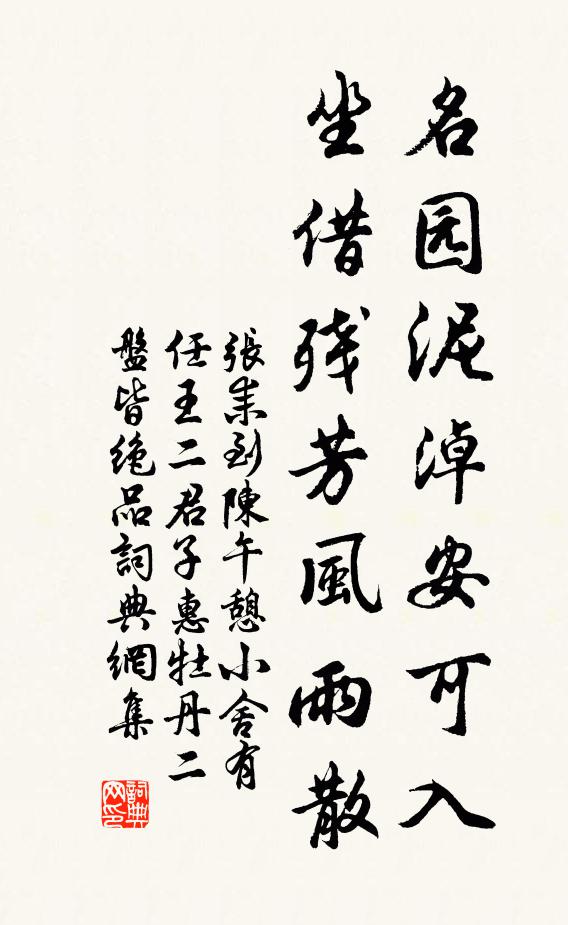 名园泥淖安可入
坐借残芳風雨散
張耒到陳午憩小舍有
任王二君子惠牡丹二
盤皆绝品詞典網集
詞典网印